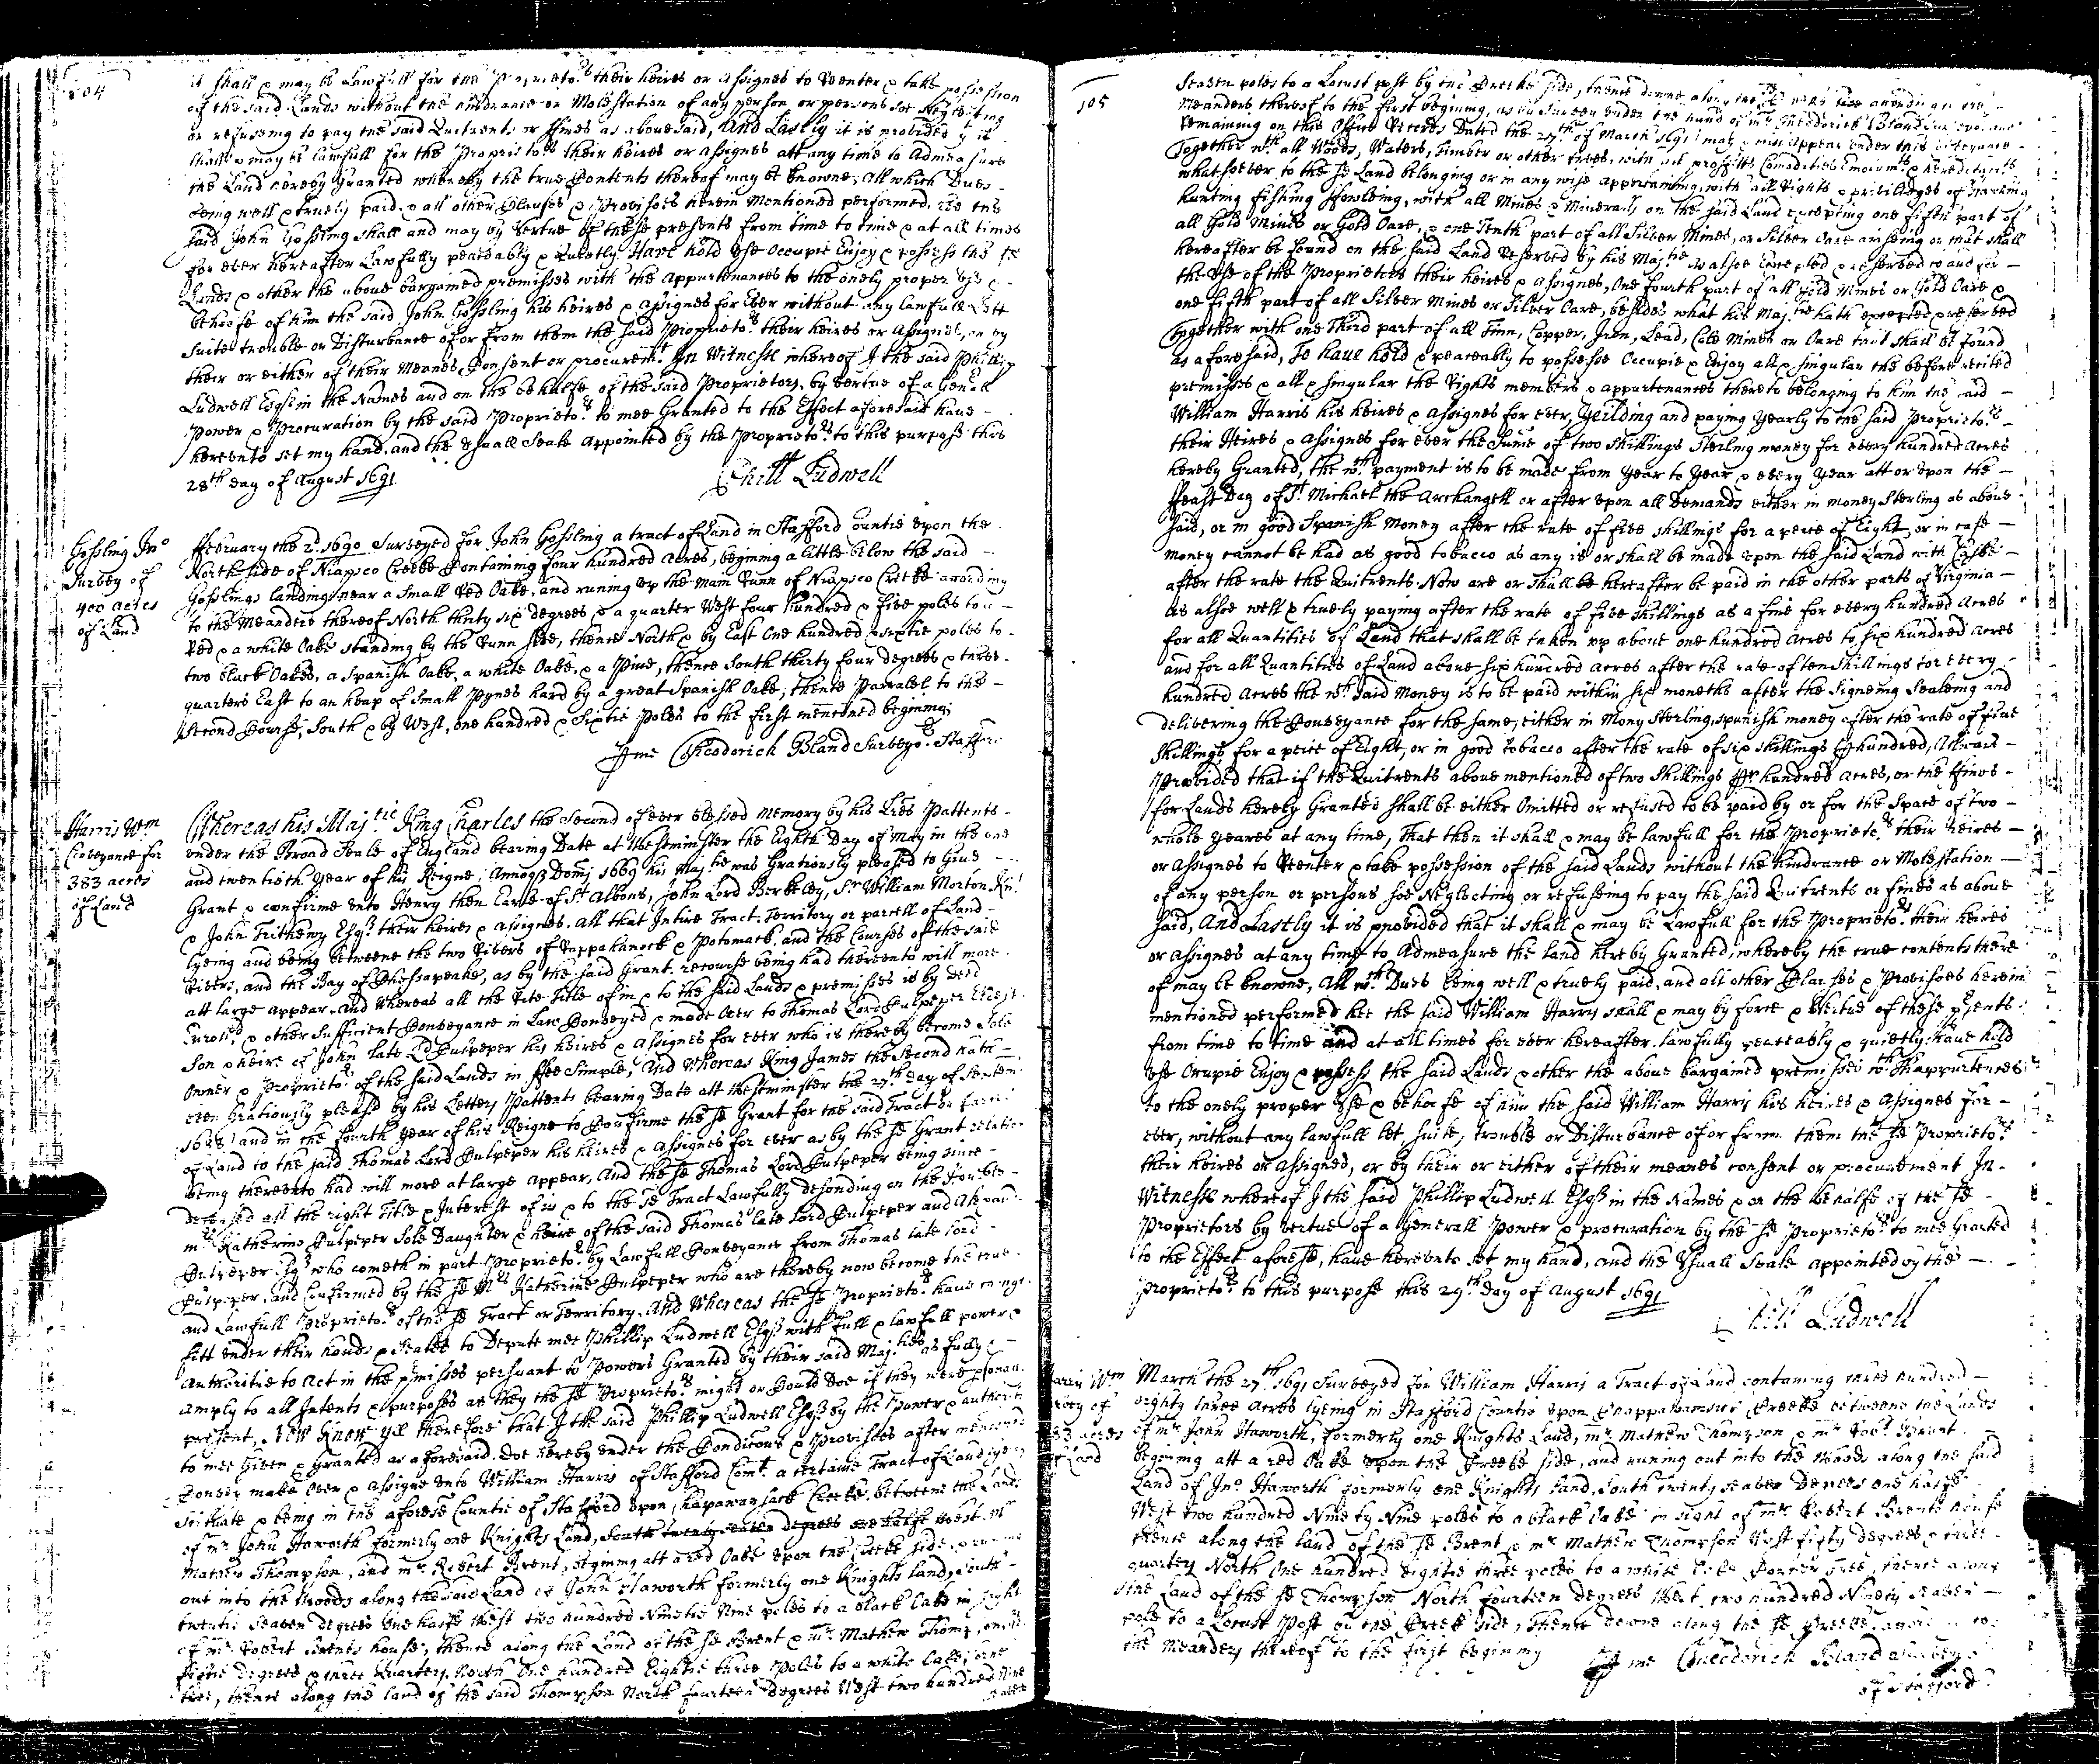 104
it shall & may be Lawfull for the Proprietors their heires or Assignes to Reenter & take possession
of the said Lands without the hindrance or Molestation of any person or persons soe Neglecting
or refuseing to pay the said Quitrents or ffines as abovesaid, And Lastly it is provided yt it
shall & may be lawfull for the Proprietors their heires or assignes att any time to Admeasure
the Land hereby Granted whereby the true Contents thereof may be knowne; All which Dues
being well & truely paid, & all other Clauses & Provisoes herein Mentioned performed, hee the
said John Gosling shall and may by Vertue of these presents from time to time & at all times
for ever hereafter Lawfully peaceably & Quietly Have hold Use Occupie Enjoy & possess the sd
Lands & other the above bargained premisses with the Appurtenances to the onely proper Use &
behoofe of him the said John Gosling his heires & Assignes for Ever without any lawfull Lett
Suite trouble or Disturbance of or from them the said Proprietors their heires or Assignes, or by
their or either of their Meanes Consent or procuremt. In Witnesse whereof I the said Phillip
Ludwell Esqr in the Names and on the behalfe of the said Proprietors, by vertue of a Genll
Power & Procuration by the said Proprietors to mee Granted to the Effect aforesaid have
hereunto set my hand, and the Usuall Seale Appointed by the Proprietors to this purpose this
28th day of August 1691
Phill Ludwell
Gosling Jno
Survey of
400 acres
of Land
ffebruary the 2d 1690 Surveyed for John Gosling a tract of Land in Stafford Countie upon the
North side of Niapsco Creeke Containing four hundred Acres, begining a little below the said
Goslings landing near a small Red Oake, and runing up the main Runn of Niapsco Creeke according
to the Meanders thereof North thirty six degrees & a quarter West four hundred & five poles to a
Red & a white Oake standing by the Runn side, thence North & by East One hundred & sixtie poles to
two black Oakes, a Spanish Oake, a white Oake, & a Pine, thence South thirty four degrees & three
quarters East to an heap of small Pynes hard by a great Spanish Oake; thence Parralel to the
second Course, South & by West, one hundred & Sixtie Poles to the first mentioned begining
Pr me Theodorick Bland Surveyor Stafford
Harris Wm
Conveyance for
383 acres
of Land
Whereas his Majtie King Charles the Second of ever blessed Memory by his Lres Pattents
under the Broad Seale of England bearing Date at Westminister the Eighth Day of May in the one
and twentieth year of his Reigne; Annoqr Domj 1669 his Majtie was Gratiously pleased to Give
Grant & confirme unto Henry then Earle of St Albons, John Lord Berkeley, Sr William Morton Knt
& John Trithewy Esqr their heires & assignes. All that Intire Tract, Territory or parcell of Land
lyeing and being betweene the two Rivers of Rappahanock & Potomack, and the Courses of the said
Rivers, and the Bay of Chessapeake, as by the said Grant, recourse being had thereunto will more
att large appear. And Whereas all the Rite Title of in & to the said Lands & premisses is by deed
Enrold & other Sufficient Conveyance in Law Conveyed & made Over to Thomas Lord Culpeper Eldest
Son & heire of John late Ld Culpeper his heires & assignes for ever who is thereby become Sole
Owner & Proprietor of the said Lands in ffee Simple; And Whereas King James the Second hath
been Gratiously pleased by his Letters Pattents bearing Date att Westminister the 27th day of Septem
1688 and in the fourth year of his Reigne to Confirme the sd Grant for the said Tract or
of Land to the said Thomas Lord Culpeper his heires & assignes for ever as by the sd Grant relation
being thereunto had will more at large appear, And the sd Thomas Lord Culpeper being since
deceased all the right Title & Interest of in & to the sd Tract Lawfully desending on the Honble
mrs Katherine Culpeper Sole Daughter & heire of the said Thomas late Lord Culpeper and Alexandr
Culpeper Esqr who cometh in part Proprietor by Lawfull Conveyance from Thomas late Lord
Culpeper, and Confirmed by the sd Mrs Katherine Culpeper who are thereby now become the true
and Lawfull Proprietors of the sd Tract or Territory. And Whereas the sd Proprietors have thought
fitt under their hands & Seales to Depute mee Phillip Ludwell Esqr with full & lawfull power &
authoritie to act in the pmisses persuant to Powers Granted by their said Majties as fully &
amply to all Intents & purposes as they the sd Proprietors might or Could doe if they were psonally
present, Now Know yee therefore that I the said Phillip Ludwell Esqr by the Power & authoritie
to mee Given & Granted as aforesaid. Doe hereby under the Conditions & Provisoes after mentioned
Convey make Over & assigne unto William Harris of Stafford Comt. a certaine Tract of Land lyeing
scituate & being in the aforesd Countie of Stafford upon Chapawansack Creeke, betweene the Lands
of mr John Haworth formerly one Knights Land, South twenty seaven degrees one halfe West, mr
Mathew Thompson, and mr Robert Brent, begining att a red Oake upon the Creeke side, & runing
out into the Woods along the said Land of John Haworth formerly one Knights land, South
twentie seaven degrees One halfe West two hundred Ninetie Nine poles to a black Oake in sight
of mr Robert Brents house; thence along the Land of the sd Brent & mr Mathew Thompson West
fiftie degrees & three Quarters North One hundred Eightie three Poles to a white Oake Corner
tree, thence along the land of the said Thompson North fourteen degrees West two hundred Nine
105
seaven poles to a Locust post by the Creeke side, thence downe along the sd Creeke according to the
Meanders thereof to the first begining, as by Survey under the hand of mr Theodorick Bland
remaining on this Office Records Dated the 27th of March 1691 may & will appear under this
Together wth all Woods, Waters, Timber or other trees, with all proffitts Comodities Emoluments & hereditaments
whatsoever to the sd Land belonging or in any wise appertaining, with all Rights & priviledges of Hawking
hunting fishing ffowleing, with all Mines & Mineralls on the said Land excepting one fifth part of
all Gold Mines or Gold Oare, & one Tenth part of all Silver Mines, or Silver Oare ariseing or that shall
hereafter be found on the said Land Reserved by his Majtie as alsoe Excepted & reserved to and for
the Use of the Proprietors their heires & assignes, One fourth part of all Gold Mines or Gold Oare &
one fifth part of all Silver Mines or Silver Oare, besides what his Majtie hath excepted & reserved
Together with one Third part of all Tinn, Copper, Iron, Lead, Cole Mines or Oare that shall be found
as aforesaid, To have hold & peaceably to possesse Occupie & Enjoy all & singular the before recited
premisses & all & singular the Rights members & appurtenances thereto belonging to him the said
William Harris his heires & assignes for ever, Yeilding and paying yearly to the said Proprietors
their Heires & assignes for ever the Sume of two Shillings Sterling money for every hundred Acres
hereby Granted, the wch payment is to be made from Year to Year & every Year att or upon the
ffeast Day of St Michaell the Archangell or after upon all Demands either in money Sterling as above
said, or in good Spanish Money after the rate of five shillings for a peice of Eight, or in case
money cannot be had as good tobacco as any is or shall be made upon the said Land with Caske
after the rate the Quitrents Now are or Shall be hereafter be paid in the other parts of Virginia
as alsoe well & truely paying after the rate of five Shillings as a fine for every hundred Acres
for all Quantities of Land that shall be taken up above one hundred Acres to six hundred Acres
and for all Quantities of Land above six hundred acres after the rate of ten Shillings for every
hundred Acres the wch said Money is to be paid within six moneths after the Signeing Sealeing and
delivering the Conveyance for the same, either in Mony Sterling, spanish money after the rate of five
Shillings for a peice of Eight, or in good tobacco after the rate of six shillings Pr hundred,
Provided that if the Quitrents above mentioned of two Shillings Pr hundred acres, or the ffines
for Lands hereby Granted Shall be either Omitted or refused to be paid by or for the Space of two
whole yeares at any time, That then it shall & may be lawfull for the Proprietors their heires
or assignes to Reenter & take possession of the said Lands without the hindrance or Molestation
of any person or persons soe Neglecting or refuseing to pay the said Quitrents or fines as above
said, And Lastly it is provided that it shall & may be Lawfull for the Proprietors their heires
or assignes at any time to Admeasure the land hereby Granted, whereby the true contents there
of may be knowne, All wch Dues being well & truely paid, and all other Clauses & Provisoes herein
mentioned performed hee the said William Harris shall & may by force & Vertue of these psents
from time to time and at all times for ever hereafter lawfully peaceably & quietly have hold
Use Occupie Enjoy & possess the said Lands & other the above bargained premisses wth Thappurtences
to the onely proper Use & behoofe of him the said William Harris his heires & Assignes for
ever, without any lawfull let suite, trouble or Disturbance of or from them the sd Proprietors
their heires or assignes, or by their or either of their meanes consent or procurement In
Witnesse whereof I the said Phillip Ludwell Esqr in the Names & on the behalfe of the sd
Proprietors by Vertue of a Generall Power & procuration by the sd Proprietors to mee Granted
to the Effect aforesd, have hereunto set my hand, and the Usuall Seale appointed by the
Proprietors to this purpose this 29th day of August 1691
Phill Ludwell
Harris Wm
Survey of
383 acres
of Land
March the 27th 1691 Surveyed for William Harris a Tract of Land containing three hundred
eighty three acres lyeing in Stafford Countie upon Creeke betweene the Lands
of mr John Haworth, formerly one Knights Land, mr Mathew Thompson & mr Robt Brent
begining att a red Oake upon the Creeke side, and runing out into the Woods along the said
Land of Jno Haworth formerly one Knights Land, South twenty seaven Degrees one halfe
West two hundred Ninety Nine poles to a black Oake in sight of mr Robert Brents house
thence along the land of the sd Brent & mr Mathew Thompson West fifty degrees & three
quarters North One hundred eightie three poles to a white Oake Corner tree, thence along
the Land of the sd Thompson North fourteen degrees West two hundred Ninety seaven
pole to a Locust Post by the Creek side, Thence downe along the sd Creeke according to
the Meanders thereof to the first begining
Pr me Theodorick Bland Surveyor
of Stafford